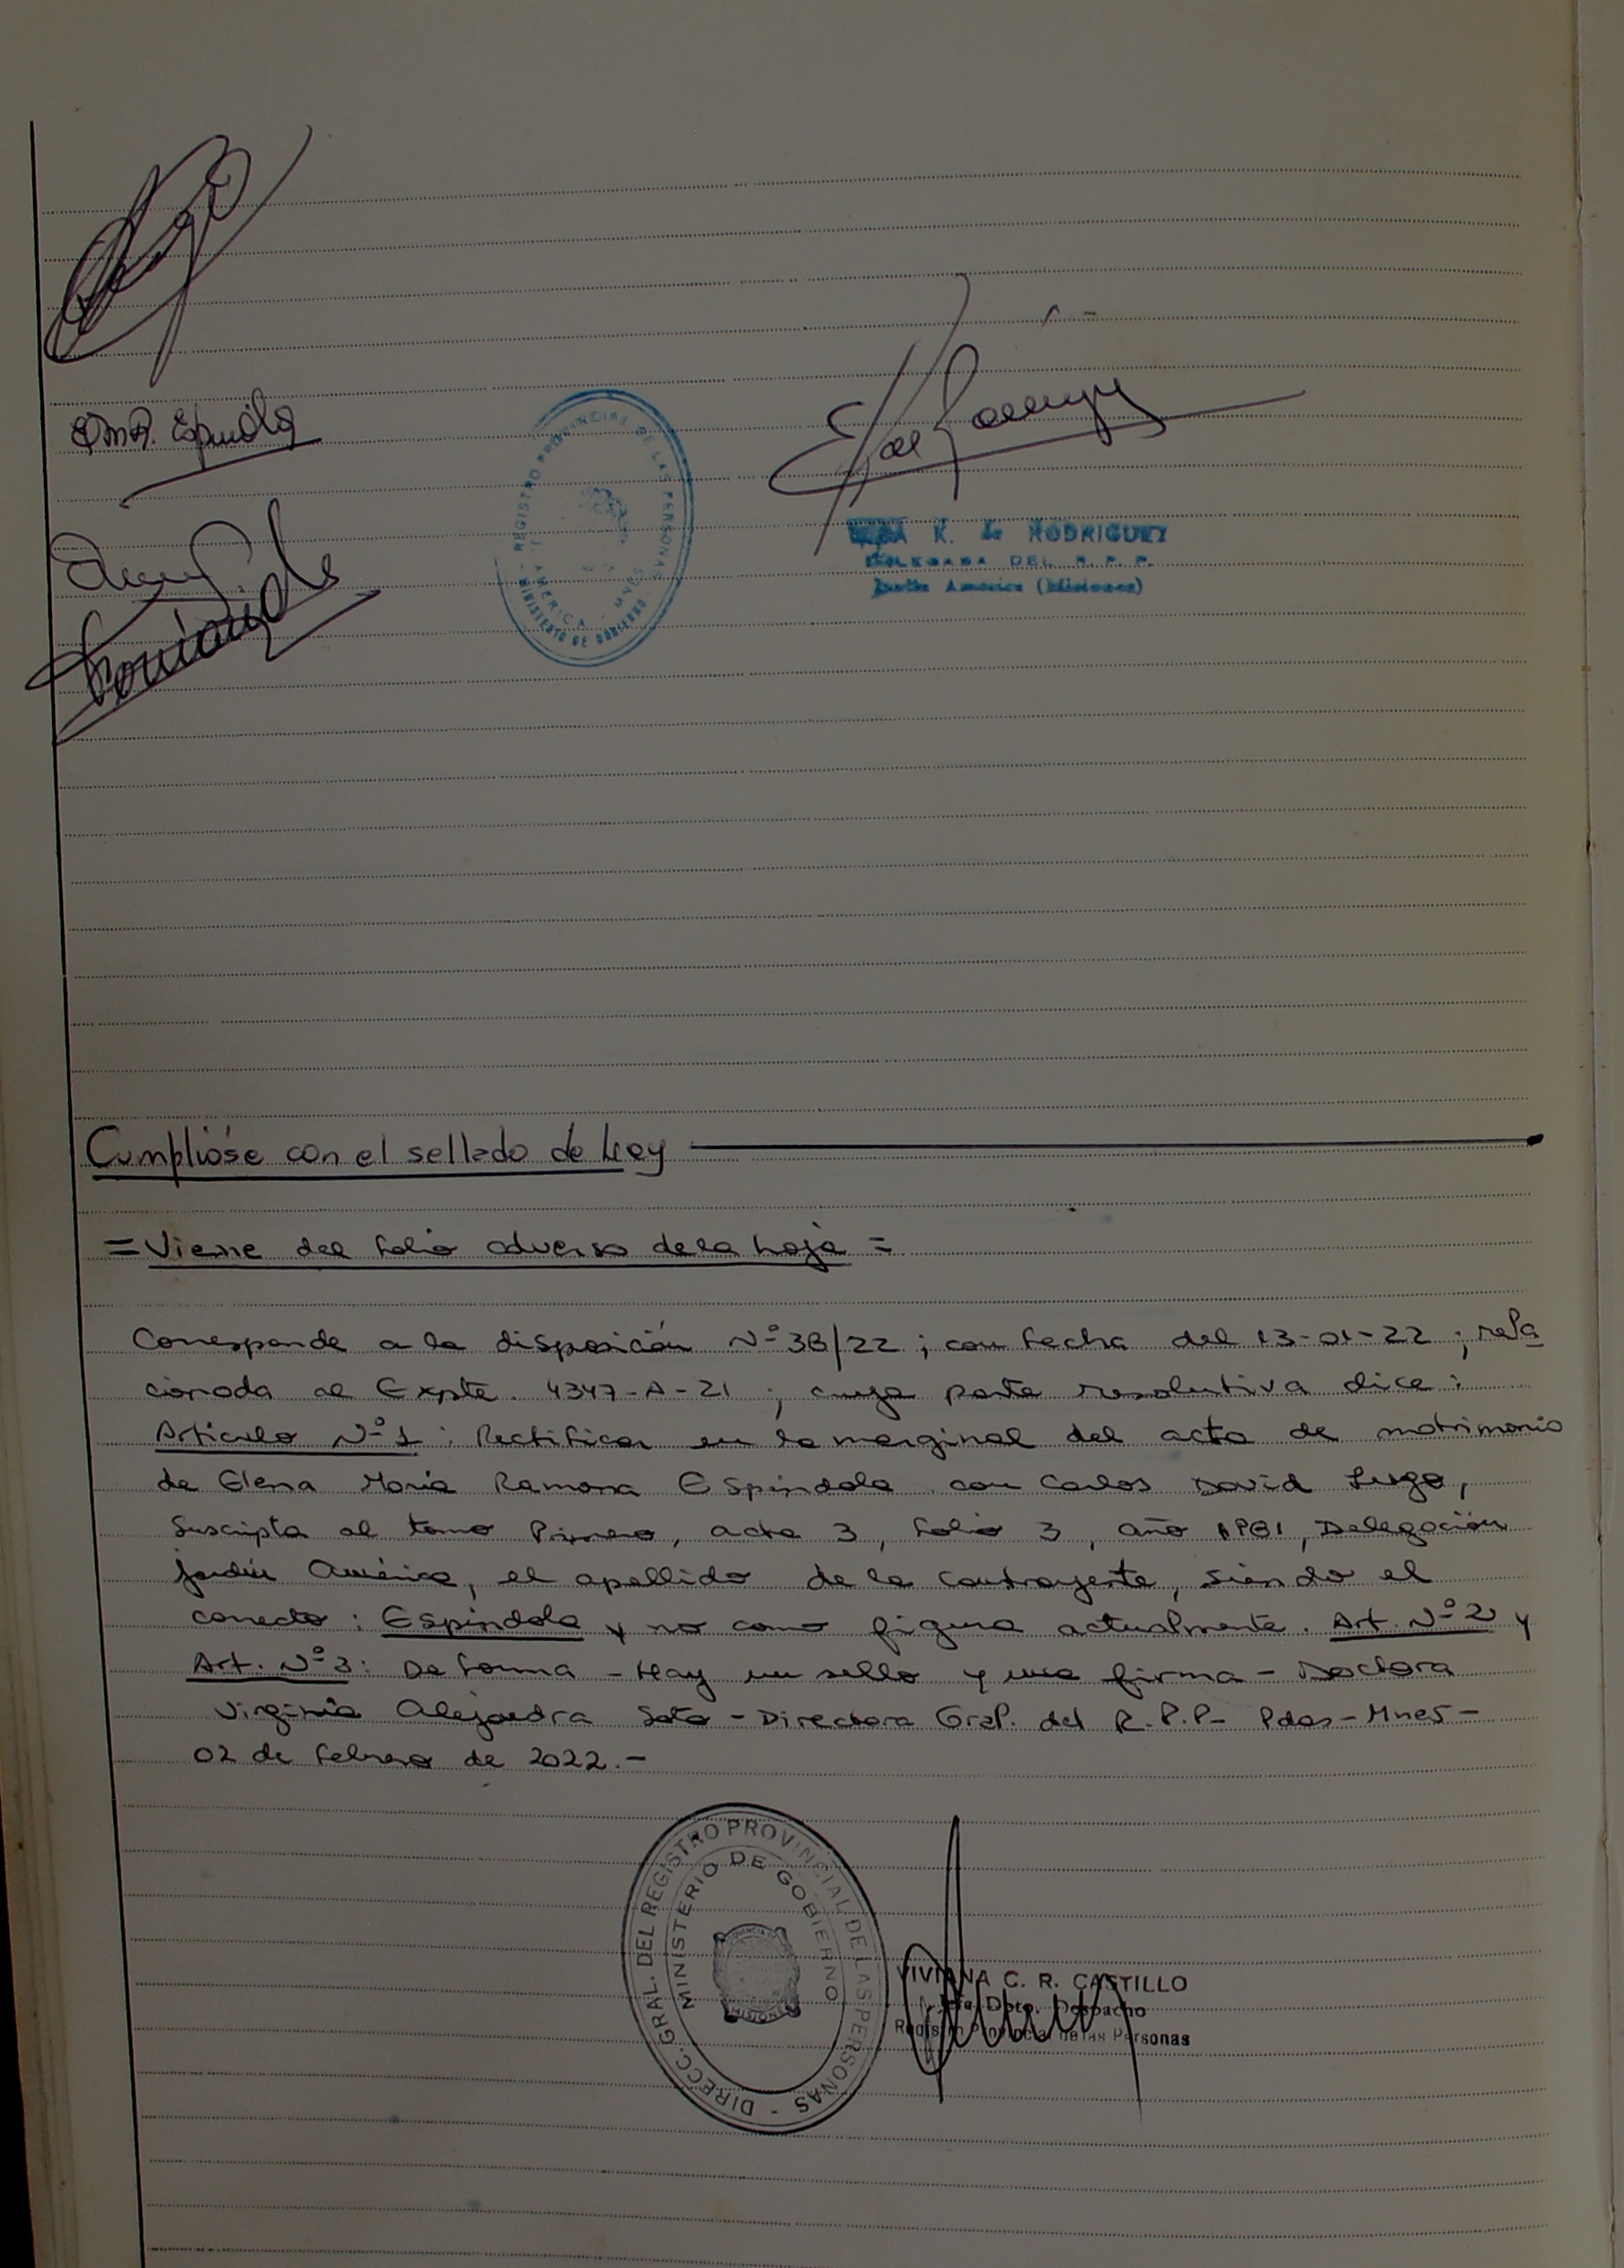 E.M.R. Espíndola
REGISTRO PROVINCIAL DE LAS PERSONAS
AMERICA - MNES
MINISTERIO DE GOBIERNO
K. de RODRIGUEZ
DELEGADA DEL R. P. P.
Jardín América (Misiones)
Cumplióse con el sellado de Ley
= Viene del folio adverso de la hoja =
Corresponde a la disposición Nº 38/22 ; con fecha del 13-01-22 ; rela
cionada al Expte. 4347-A-21 ; cuya parte resolutiva dice :
Artículo Nº 1 : Rectificar en la marginal del acta de matrimonio
de Elena María Ramona Espindola con Carlos David Lugo,
Suscripta al tomo Primero, acta 3, folio 3, año 1981, Delegación
Jardín América, el apellido de la contrayente, siendo el
correcto : Espíndola y no como figura actualmente. Art. Nº 2 y
Art. Nº 3 : De forma - Hay un sello y una firma - Doctora
Virginia Alejandra Soto - Directora Gral. del R.P.P - Pdas - Mnes -
02 de febrero de 2022.-
DIRECC. GRAL. DEL REGISTRO PROVINCIAL DE LAS PERSONAS -
MINISTERIO DE GOBIERNO
VIVIANA C. R. CASTILLO
Dpto. Despacho
Registro Provincial de las Personas